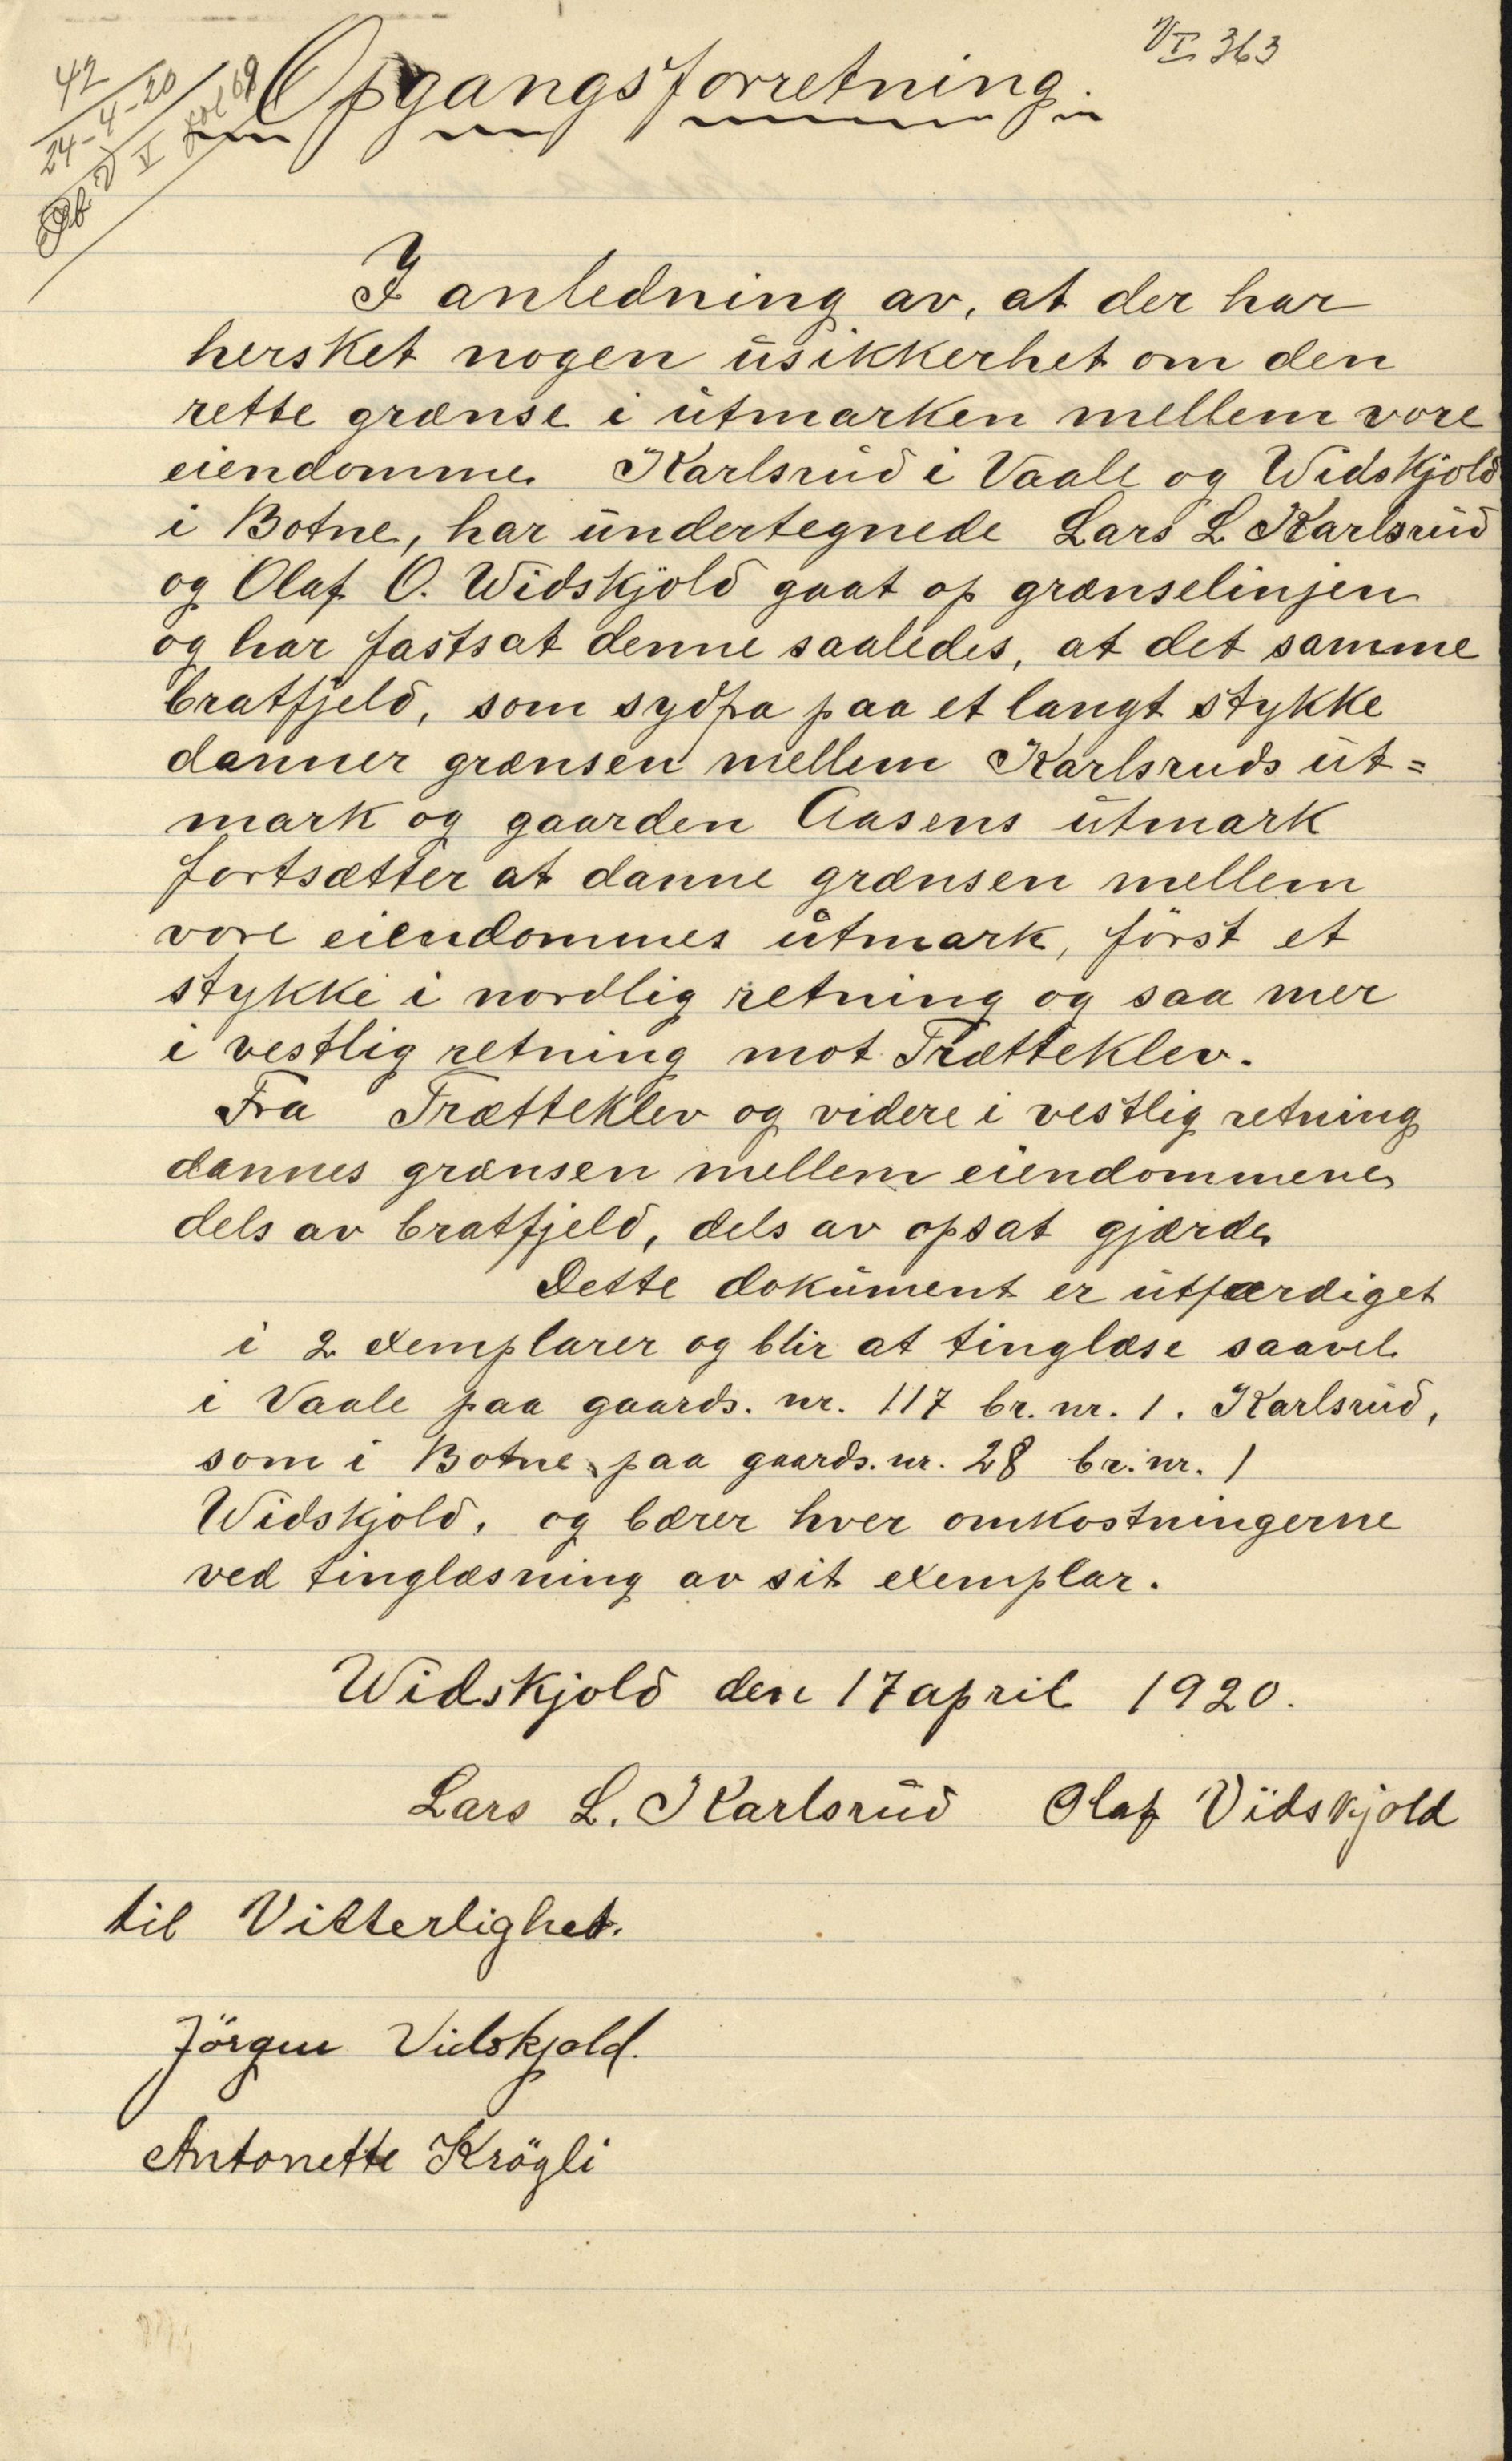 VI 363
42
24-4-20
Opgangsforretning.
I anledning av, at der har
hersket nogen usikkerhet om den
rette grænse i utmarken mellem vore
eiendomme Karlsrud i Vaale og Widskjold
i Botne, har undertegnede Lars L Karlsrud
og Olaf O. Widskjold gaat op grænselinjen
og har fastsat denne saaledes, at det samme
bratfjeld, som sydfra paa et langt stykke
danner grænsen mellem Karlsruds ut=
mark og gaarden Aasens utmark
fortsætter at danne grænsen mellem
vore eiendommes utmark, først et
stykke i nordlig retning og saa mer
i vestlig retning mot Trætteklev.
Fra Trætteklev og videre i vestlig retning
dannes grænsen mellem eiendommene
dels av bratfjeld, dels av opsat gjærde
Dette dokument er utfærdiget
i 2 exemplarer og blir at tinglæse saavel
i Vaale paa gaards. nr. 117 br. nr. 1. Karlsrud,
som i Botne paa gaards. nr. 28 br. nr. 1
Widskjold, og bærer hver omkostningerne
ved tinglæsning av sit exemplar.
Widskjold den 17 april 1920.
Lars L. Karlsrud Olaf Vidskjold
til Vitterlighet.
Jörgen Vidskjold.
Antonette Krögli